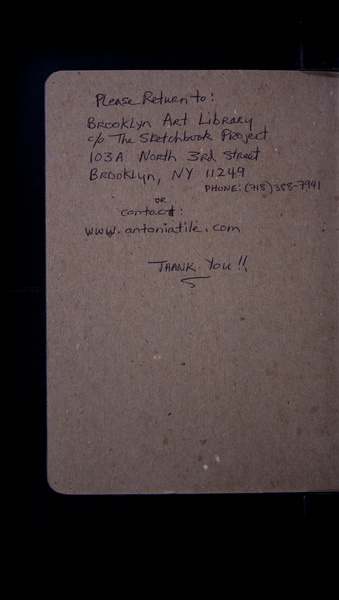 Please Return to:
Brooklyn Art Library
c/o The Sketchbook Project
103A North 3rd Street
Brooklyn, NY 11249
PHONE: (718) 388-7941
or
contact:
www.antoniatile.com
THANK YOU!!